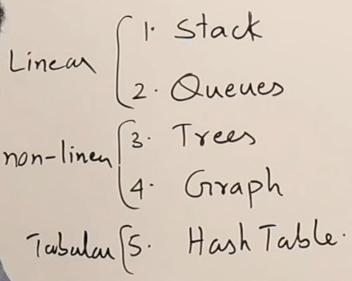 Linear
1. Stack
2. Queues
non-linear
3. Trees
4. Graph
Tabular
5. Hash Table.